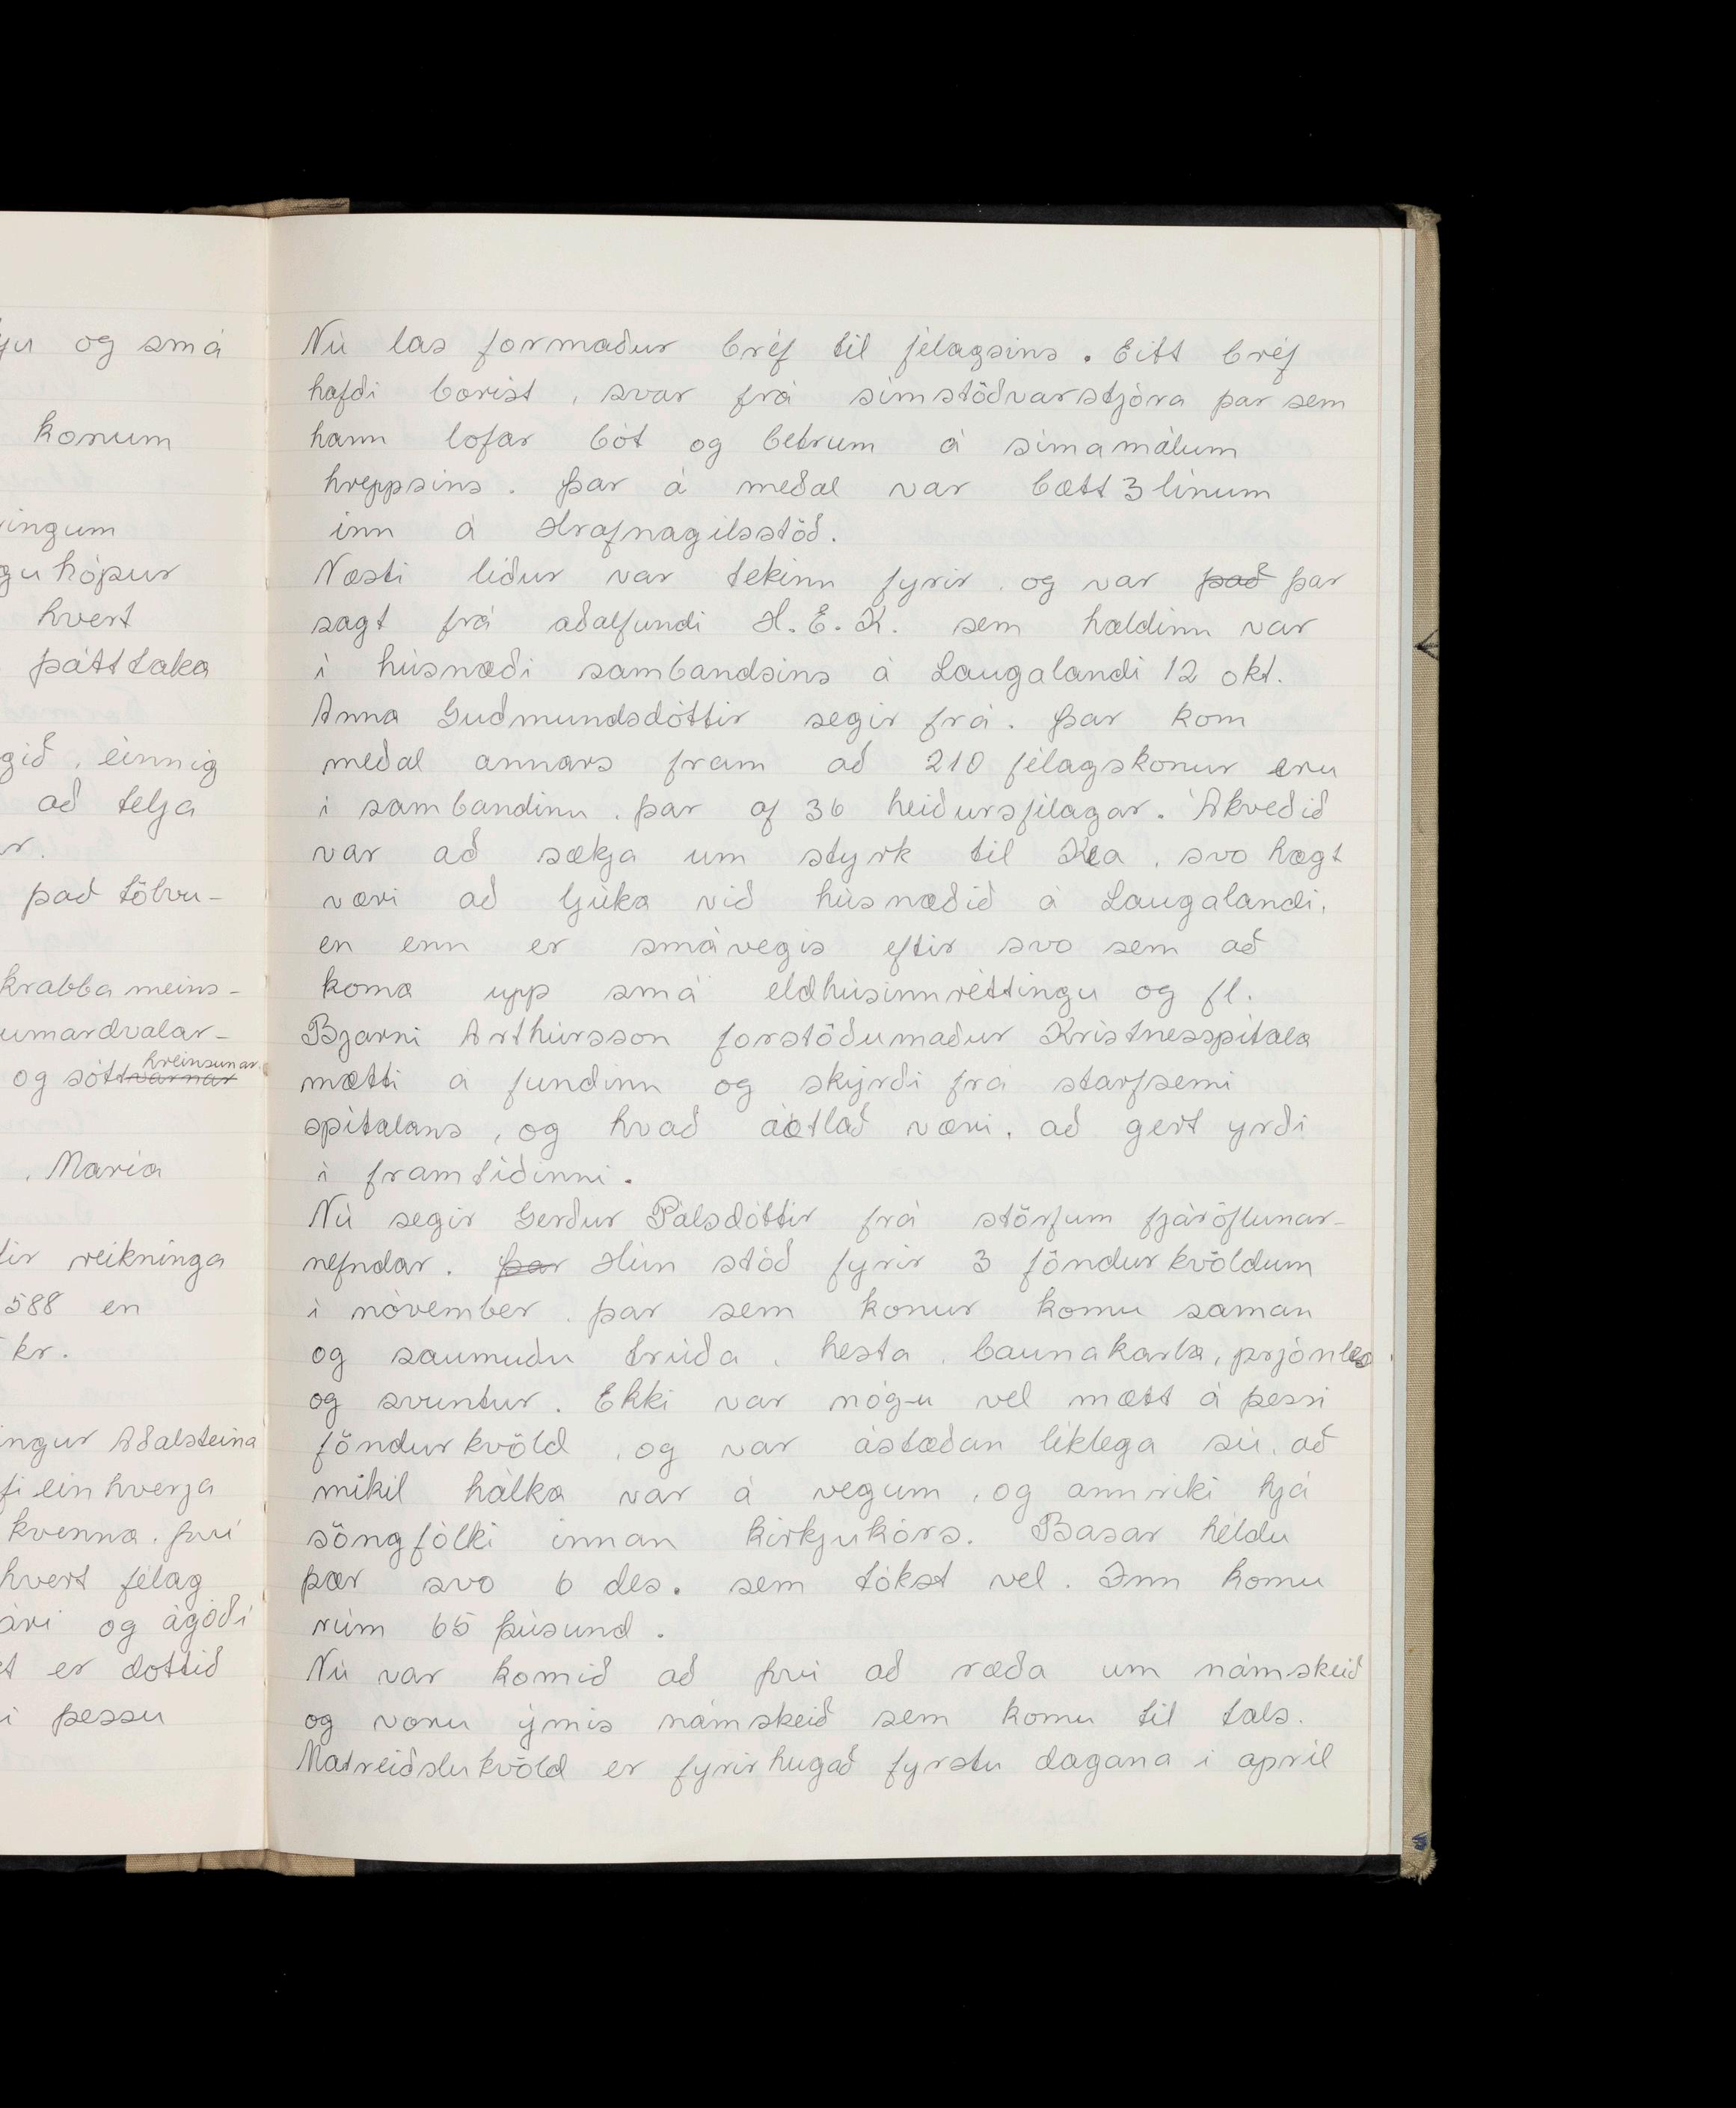 og smá
konum
ingum
gu hópur
hvert
þátttaka
gið, einnig
að telja
r.
það tölvu-
krabbameins-
umardvalar-
hreinsunar
og sóttvarnar
, María
tir reikninga
588 en
kr.
ingur Aðalsteina
fi einhverja
kvenna, því
hvert félag
ári og ágóði
t er dottið
í þessu
Nú las formaður bréf til félagsins. Eitt bréf
hafði borist, svar frá símstöðvarstjóra þar sem
hann lofar bót og betrum á símamálum
hreppsins. Þar á meðal var bætt 3 línum
inn á Hrafnagilsstöð.
Næsti liður var tekinn fyrir, og var það þar
sagt frá aðalfundi H.E.K. sem haldinn var
í húsnæði sambandsins á Laugalandi 12 okt.
Anna Guðmundsdóttir segir frá. Þar kom
meðal annars fram að 210 félagskonur eru
í sambandinu, þar af 36 heiðursfélagar. Ákveðið
var að sækja um styrk til Kea, svo hægt
væri að ljúka við húsnæðið á Laugalandi,
en enn er smávegis eftir svo sem að
koma upp smá eldhúsinnréttingu og fl.
Bjarni Arthúrsson forstöðumaður Kristnesspítala
mætti á fundinn og skýrði frá starfsemi
spítalans, og hvað áætlað væri, að gert yrði
í framtíðinni.
Nú segir Gerður Pálsdóttir frá störfum fjáröflunar-
nefndar. Þar Hún stóð fyrir 3 föndurkvöldum
í nóvember, þar sem konur komu saman
og saumuðu trúða, hesta, baunakarla, prjónles
og svuntur. Ekki var nógu vel mætt á þessi
föndurkvöld, og var ástæðan líklega sú, að
mikil hálka var á vegum, og annríki hjá
söngfólki innan kirkjukórs. Basar héldu
þær svo 6 des. sem tókst vel. Inn komu
rúm 65 þúsund.
Nú var komið að því að ræða um námskeið
og voru ýmis námskeið sem komu til tals.
Matreiðslukvöld er fyrirhugað fyrstu dagana í apríl